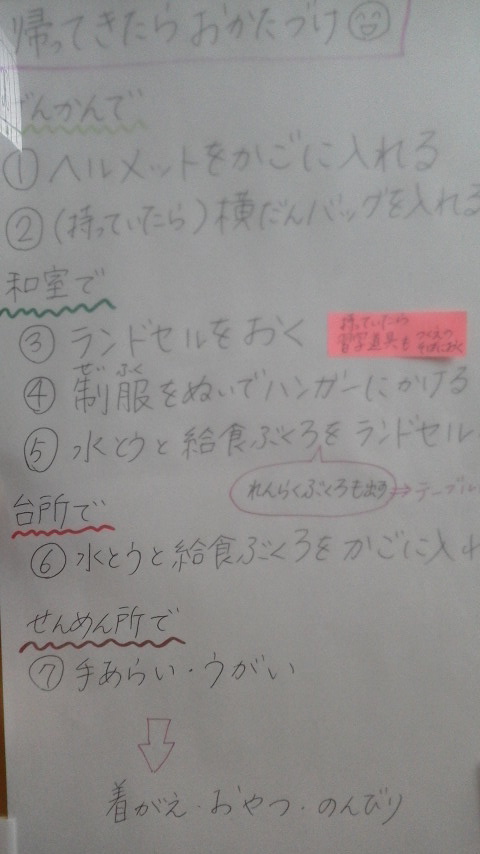 帰ってきたら おかたづけ
げんかんで
① ヘルメットをかごに入れる
② (持っていたら) 横だんバッグを入れる
和室で
③ ランドセルをおく
持っていたら
習字道具も つくえの
④ 制服をぬいでハンガーにかける
せい ふく
⑤ 水とうと給食ぶくろを ランドセル
れんらくぶくろも出す⇒テーブル
台所で
⑥ 水とうと給食ぶくろを かごに入れ
せんめん所で
⑦ 手あらい・うがい
着がえ・おやつ・のんびり